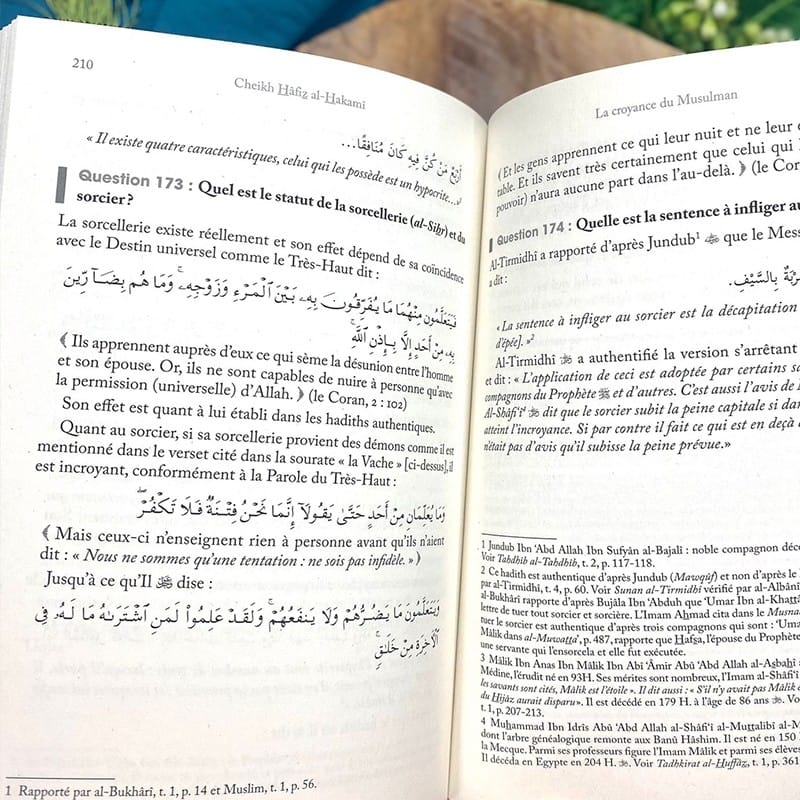 210
Cheikh Hâfiz al-Hakamî
أَرْبَعٌ مَنْ كُنَّ فِيهِ كَانَ مُنَافِقًا...
« Il existe quatre caractéristiques, celui qui les possède est un hypocrite...»¹
Question 173 : Quel est le statut de la sorcellerie (al-Sihr) et du
sorcier?
La sorcellerie existe réellement et son effet dépend de sa coïncidence
avec le Destin universel comme le Très-Haut dit :
فَيَتَعَلَّمُونَ مِنْهُمَا مَا يُفَرِّقُونَ بِهِۦ بَيْنَ ٱلْمَرْءِ وَزَوْجِهِۦ ۚ وَمَا هُم بِضَآرِّينَ
بِهِۦ مِنْ أَحَدٍ إِلَّا بِإِذْنِ ٱللَّهِ ۚ
﴾ Ils apprennent auprès d'eux ce qui sème la désunion entre l'homme
et son épouse. Or, ils ne sont capables de nuire à personne qu'avec
la permission (universelle) d'Allah. ﴿ (le Coran, 2 : 102)
Son effet est quant à lui établi dans les hadiths authentiques.
Quant au sorcier, si sa sorcellerie provient des démons comme il est
mentionné dans le verset cité dans la sourate « la Vache » [ci-dessus], il
est incroyant, conformément à la Parole du Très-Haut :
وَمَا يُعَلِّمَانِ مِنْ أَحَدٍ حَتَّىٰ يَقُولَآ إِنَّمَا نَحْنُ فِتْنَةٌ فَلَا تَكْفُرْ ۖ
﴾ Mais ceux-ci n'enseignent rien à personne avant qu'ils n'aient
dit : « Nous ne sommes qu'une tentation : ne sois pas infidèle. » ﴿
Jusqu'à ce qu'Il ﷻ dise :
وَيَتَعَلَّمُونَ مَا يَضُرُّهُمْ وَلَا يَنفَعُهُمْ ۚ وَلَقَدْ عَلِمُوا۟ لَمَنِ ٱشْتَرَىٰهُ مَا لَهُۥ فِى
ٱلْـَٔاخِرَةِ مِنْ خَلَـٰقٍ ۚ
1 Rapporté par al-Bukhârî, t. 1, p. 14 et Muslim, t. 1, p. 56.
La croyance du Musulman
﴾ Et les gens apprennent ce qui leur nuit et ne leur e
table. Et ils savent très certainement que celui qui l
pouvoir) n'aura aucune part dans l'au-delà. ﴿ (le Cora
Question 174 : Quelle est la sentence à infliger au
Al-Tirmidhî a rapporté d'après Jundub¹ que le Mess
a dit :
رْبَةٌ بِالسَّيْفِ.
« La sentence à infliger au sorcier est la décapitation
d'épée]. »²
Al-Tirmidhî a authentifié la version s'arrêtant
et dit : « L'application de ceci est adoptée par certains sa
compagnons du Prophète ﷺ et d'autres. C'est aussi l'avis de
Al-Shâfi'î⁴ dit que le sorcier subit la peine capitale si dan
atteint l'incroyance. Si par contre il fait ce qui est en deçà
n'était pas d'avis qu'il subisse la peine prévue.»
1 Jundub Ibn 'Abd Allah Ibn Sufyân al-Bajali : noble compagnon décé
Voir Tahdhib al-Tahdhib, t. 2, p. 117-118.
2 Ce hadith est authentique d'après Jundub (Mawqûf) et non d'après le
par al-Tirmidhi, t. 4, p. 60. Voir Sunan al-Tirmidhî vérifié par al-Albânî
al-Bukhâri rapporte d'après Bujâla Ibn 'Abduh que 'Umar Ibn al-Khattâ
lettre de tuer tout sorcier et sorcière. L'Imam Ahmad cita dans le Musnad
tuer le sorcier est authentique d'après trois compagnons qui sont : 'Uma
Mâlik dans al-Muwatta', p. 487, rapporte que Hafsa, l'épouse du Prophète
une servante qui l'ensorcela et elle fut exécutée.
3 Mâlik Ibn Anas Ibn Mâlik Ibn Abi 'Âmir Abû 'Abd Allah al-Asbahî
Médine, l'érudit né en 93H. Ses mérites sont nombreux, l'Imam al-Shâfi'î
les savants sont cités, Mâlik est l'étoile ». Il dit aussi : « S'il n'y avait pas Mâlik e
du Hijâz aurait disparu ». Il est décédé en 179 H. à l'âge de 86 ans . Vo
t. 1, p. 207-213.
4 Muhammad Ibn Idrîs Abû 'Abd Allah al-Shâfi'î al-Muttalibî al-M
dont l'arbre généalogique remonte aux Banû Hâshim. Il est né en 150
la Mecque. Parmi ses professeurs figure l'Imam Mâlik et parmi ses élèves
Il décéda en Egypte en 204 H. . Voir Tadhkirat al-Huffâz, t. 1, p. 361